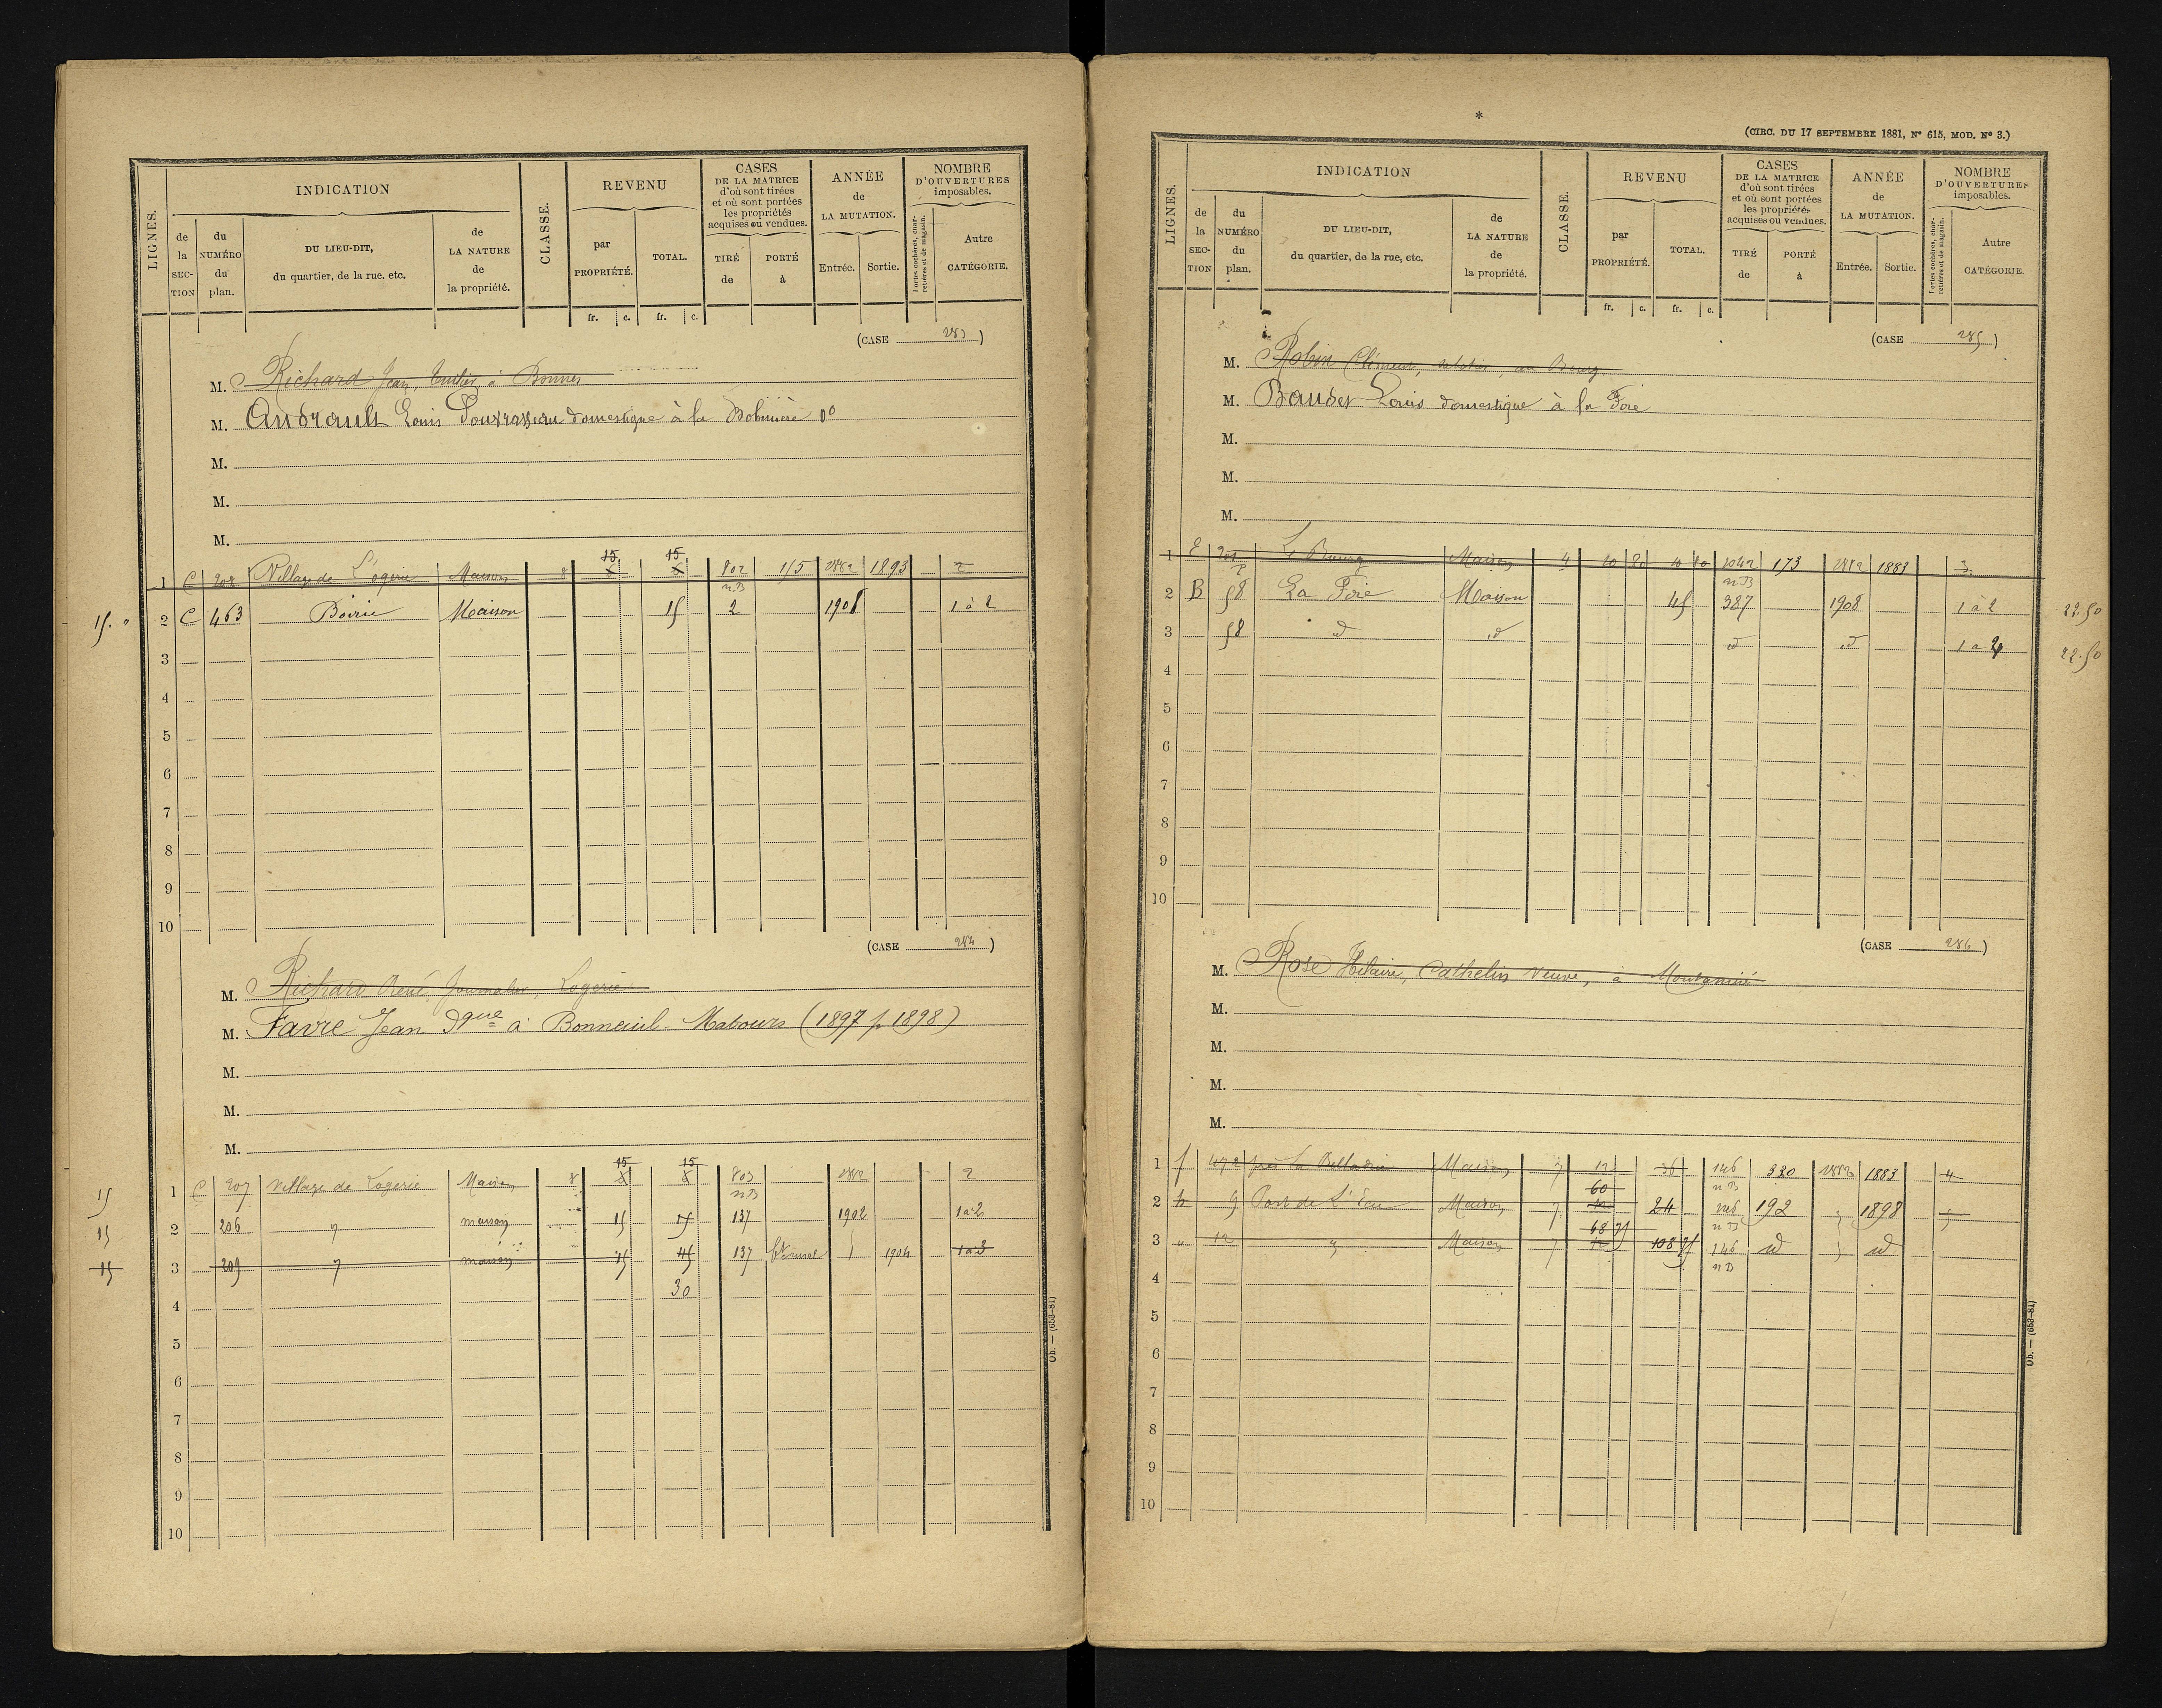 LIGNES.
INDICATION
de la SECTION
du NUMÉRO du plan.
DU LIEU-DIT, du quartier, de la rue. etc.
de LA NATURE de la propriété.
CLASSE.
REVENU
par PROPRIÉTÉ.
TOTAL.
CASES DE LA MATRICE d'où sont tirées et où sont portées les propriétés acquises ou vendues.
TIRÉ de
PORTÉ à
ANNÉE de LA MUTATION.
Entrée.
Sortie.
NOMBRE D'OUVERTURES imposables.
Portes cochères, charretières et de magasin.
Autre CATÉGORIE.
fr. c. fr. c.
(CASE 283)
M. Richard Jean, à Bonnes
M. Andrault Louis domestique à la
M.
M.
M.
1 C 208 Village de L'ogerie Maison 8 15 15 802 115 1882 1893 2
n B
15. " 2 C 463 Boirie Maison 15 2 1908 1 à 2
3
4
5
6
7
8
9
10
(CASE 284)
M. Richard René, Journalier, Logerie
M. Favre Jean dque à Bonneuil-Matours (1897 p. 1898)
M.
M.
M.
15 1 C 207 Village de Logerie Maison 8 15 15 803 1882 2
n B
15 2 206 " maison 15 15 137 1902 1 à 2
15 3 209 " maison 15 45 137 1904 1 à 3
4 30
5
6
7
8
9
10
Ob. — (653-81)
*
(CIRC. DU 17 SEPTEMBRE 1881, N° 615, MOD. N° 3.)
LIGNES.
INDICATION
de la SECTION
du NUMÉRO du plan.
DU LIEU-DIT, du quartier, de la rue, etc.
de LA NATURE de la propriété.
CLASSE.
REVENU
par PROPRIÉTÉ.
TOTAL.
CASES DE LA MATRICE d'où sont tirées et où sont portées les propriétés acquises ou vendues.
TIRÉ de
PORTÉ à
ANNÉE de LA MUTATION.
Entrée.
Sortie.
NOMBRE D'OUVERTURES imposables.
Portes cochères, charretières et de magasin.
Autre CATÉGORIE.
fr. c. fr. c.
(CASE 285)
M. Robin Clément, au Bourg
M. Baudet Louis domestique à la Foie
M.
M.
M.
1 E Le Bourg Maison 4 20 80 20 80 1042 173 1882 1883 3
n B
2 B 58 La Foie Maison 45 387 1908 1 à 2 22.50
3 58 d° d° d° d° 1 à 2 22.50
4
5
6
7
8
9
10
(CASE 286)
M. Rose Hilaire, Cathelin Veuve, à
M.
M.
M.
M.
1 f 472 près la Maison 7 12 36 146 330 1882 1883 4
n B
2 h 9 Port de L'Eau Maison 7 60 24 146 192 " 1898 5
n B
3 " 12 " Maison 7 68 75 108 75 146 id " id
n B
4
5
6
7
8
9
10
Ob. — (653-81)